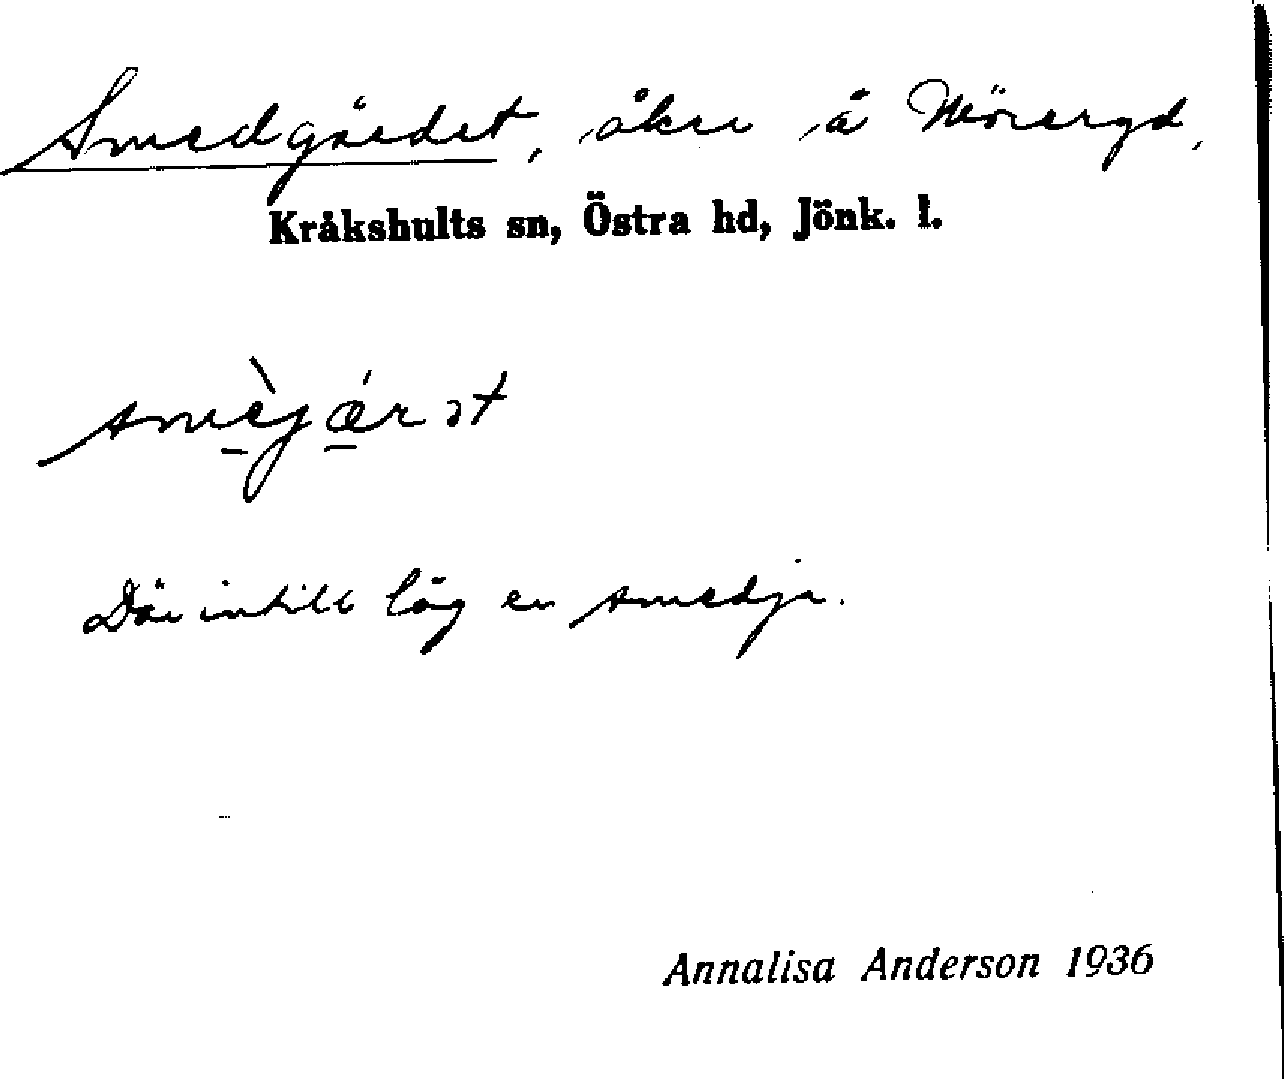 Smedgärdet, åker å Möreryd,
Kråkshults sn, Östra hd, Jönk. l.
smèjǽrət
Där intill låg en smedja.
Annalisa Anderson 1936